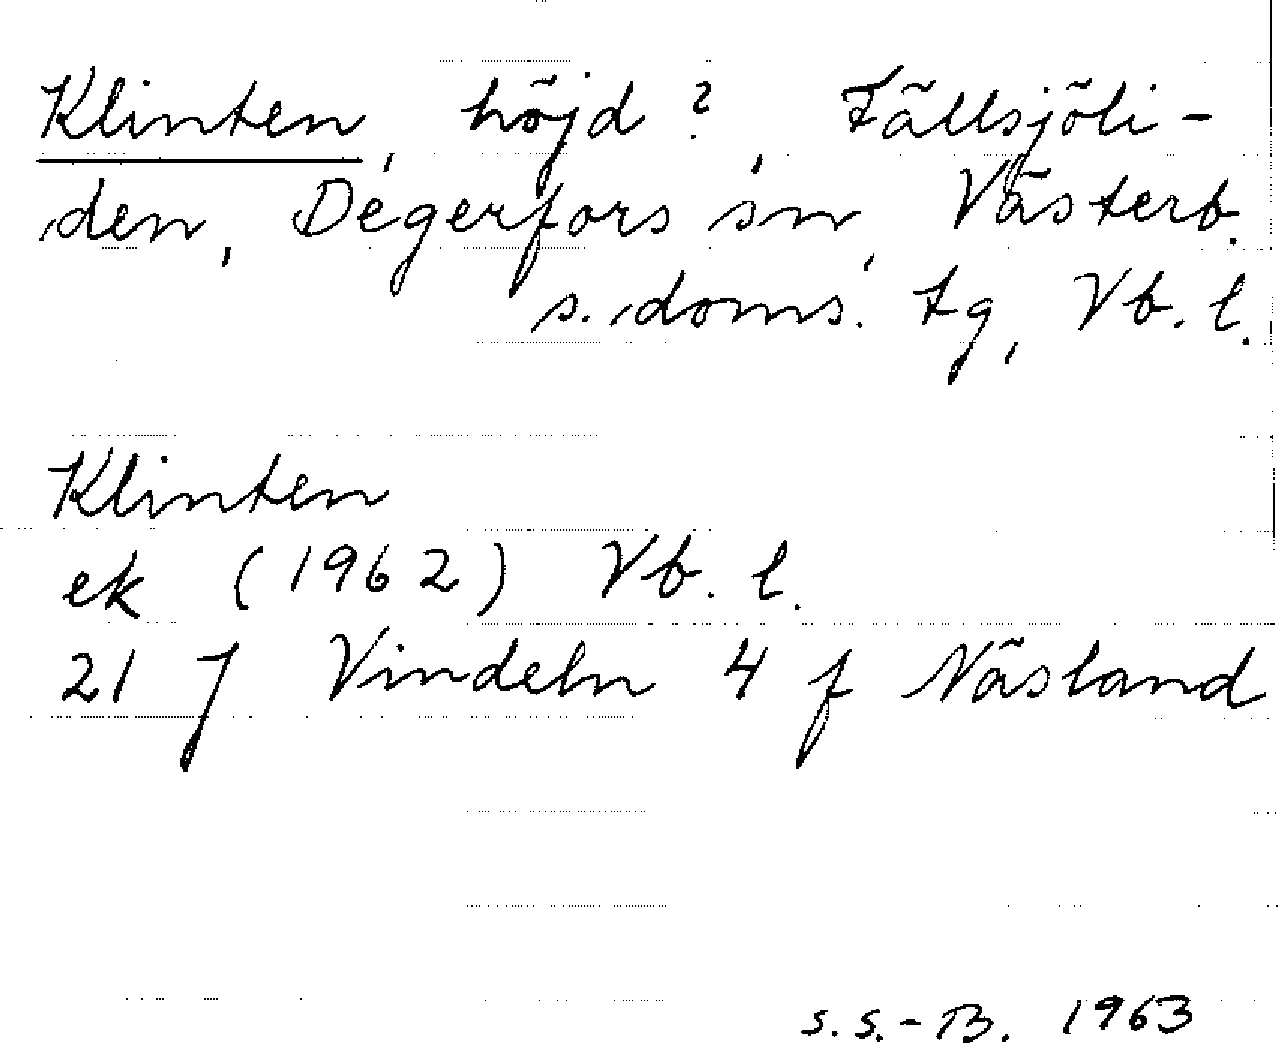 Klinten, höjd ?, Fällsjöli-
den, Degerfors sn, Västerb.
s. doms. tg, Vb. l.
Klinten
ek (1962) Vb. l.
21 J Vindeln 4 f Näsland
S. S.-B. 1963